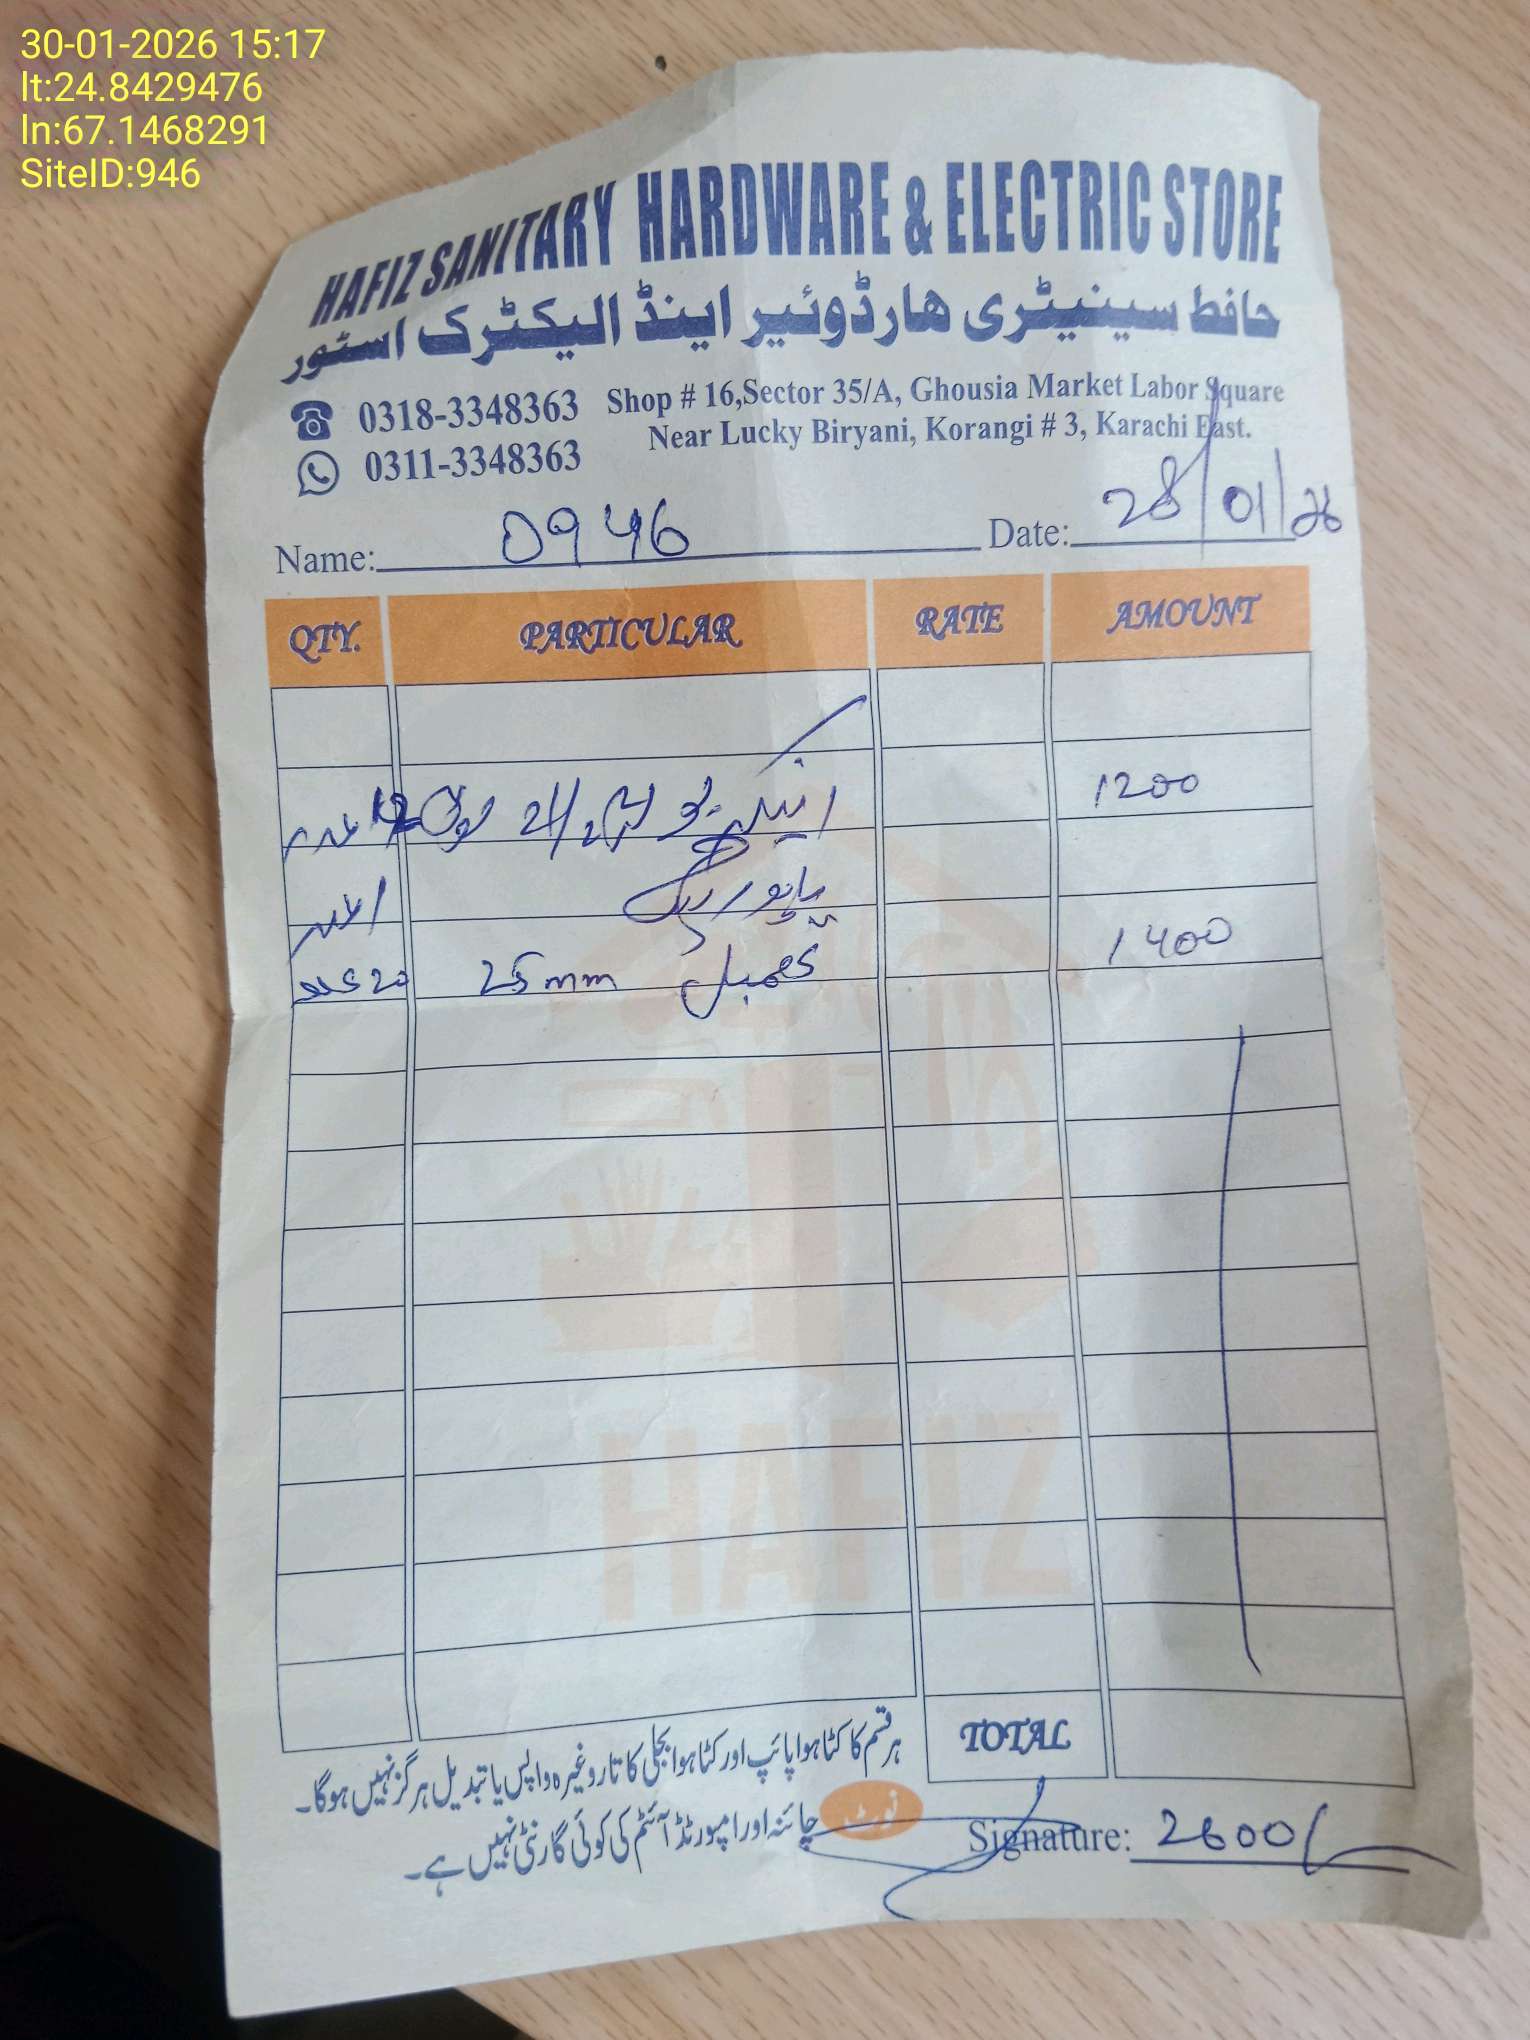 30-01-2026 15:17
lt:24.8429476
ln:67.1468291
SiteID:946
HAFIZ SANITARY HARDWARE & ELECTRIC STORE
حافظ سینیٹری ھارڈوئیر اینڈ الیکٹرک اسٹور
0318-3348363
0311-3348363
Shop # 16,Sector 35/A, Ghousia Market Labor Square
Near Lucky Biryani, Korangi # 3, Karachi East.
Name: 0946 Date: 28/01/26
QTY. PARTICULAR RATE AMOUNT
12 عدد 1200
1 عدد
20 عدد 25mm 1400
TOTAL
ہر قسم کا کٹا ہوا پائپ اور کٹا ہوا بجلی کا تار وغیرہ واپس یا تبدیل ہرگز نہیں ہوگا۔
نوٹ چائنہ اور امپورٹڈ آئٹم کی کوئی گارنٹی نہیں ہے۔
Signature: 2600/
HAFIZ